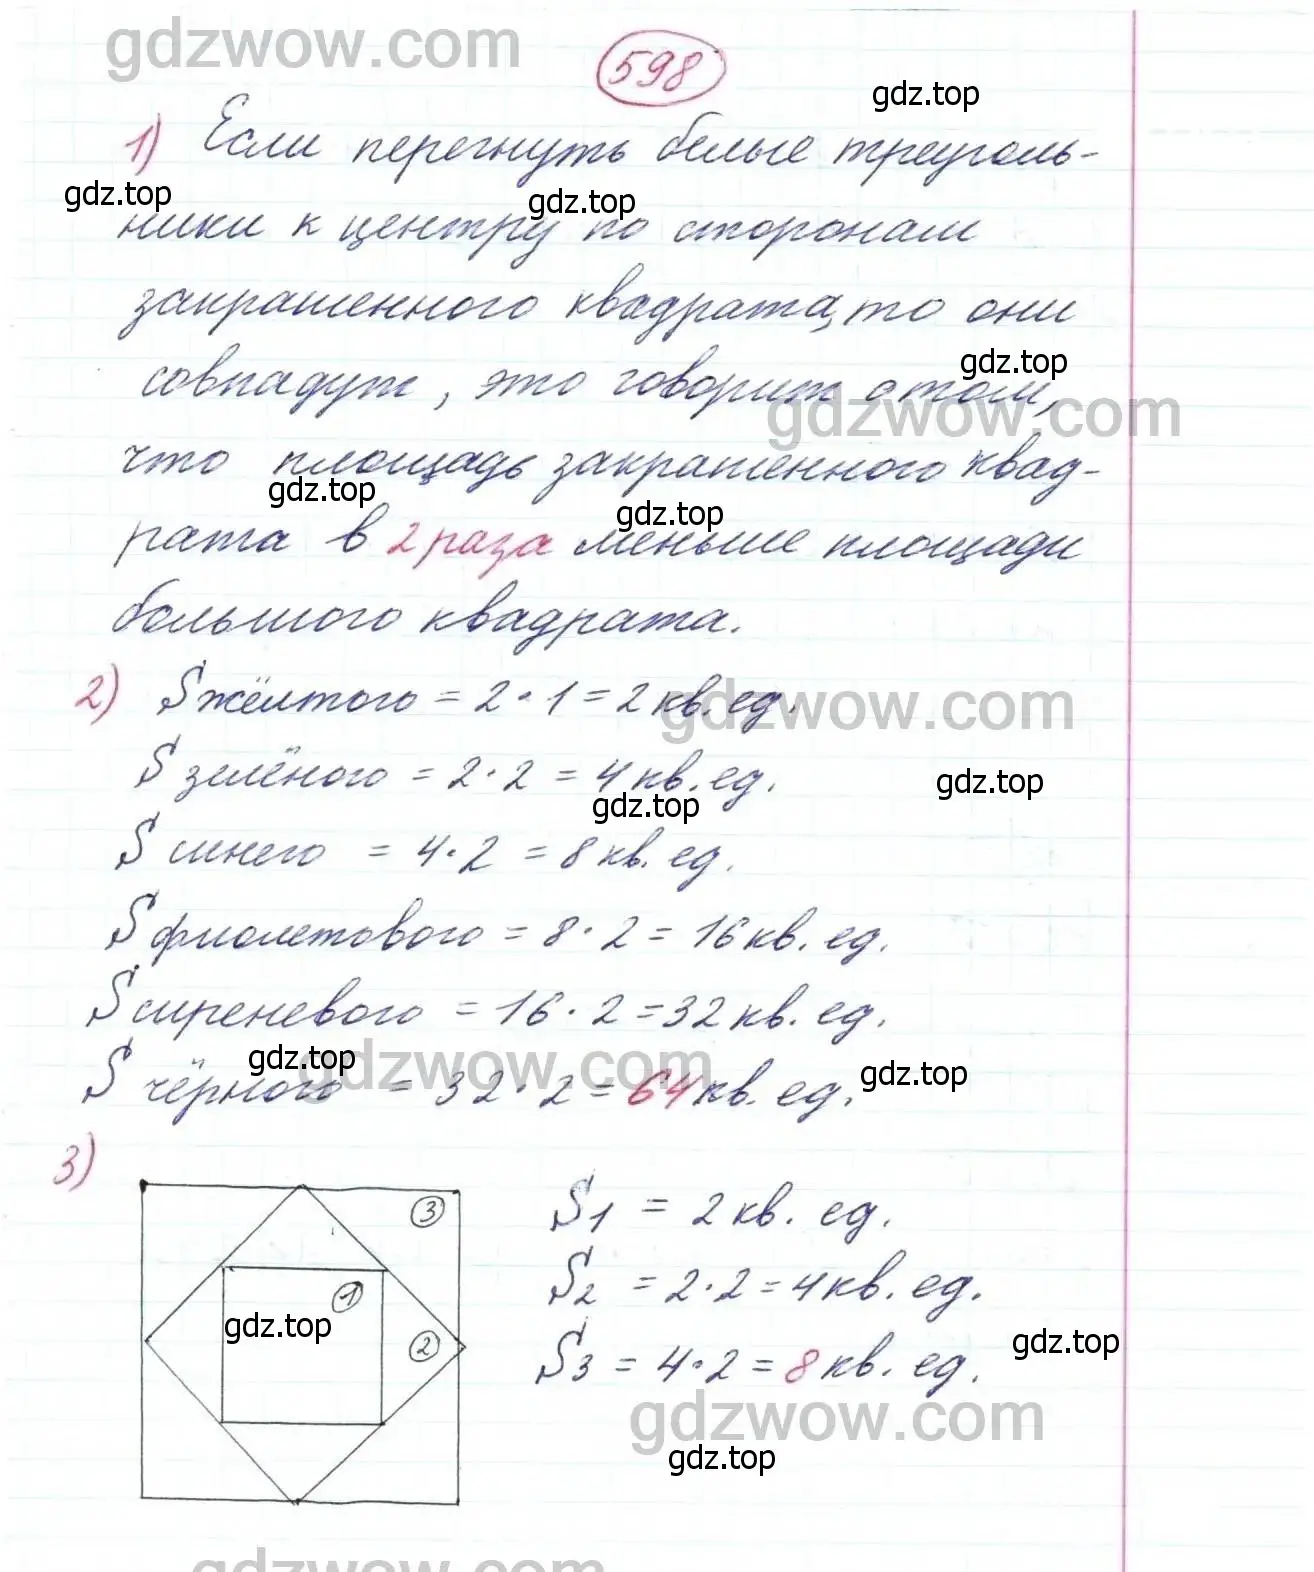 gdzwow.com
598
gdz.top
1) Если перегнуть белые треуголь-
gdz.top
gdz.top
ники к центру по сторонам
закрашенного квадрата, то они
gdz.top
совпадут, это говорит о том,
gdzwow.com
что площадь закрашенного квад-
gdz.top
gdz.top
рата в 2 раза меньше площади
большого квадрата.
2) S жёлтого = 2 · 1 = 2 кв. ед.
gdzwow.com
S зелёного = 2 · 2 = 4 кв. ед.
gdz.top
gdz.top
S синего = 4 · 2 = 8 кв. ед.
S фиолетового = 8 · 2 = 16 кв. ед.
S сиреневого = 16 · 2 = 32 кв. ед.
gdz.top
gdzwow.com
gdz.top
S чёрного = 32 · 2 = 64 кв. ед.
3)
3
1
2
gdz.top
S1 = 2 кв. ед.
S2 = 2 · 2 = 4 кв. ед.
gdz.top
S3 = 4 · 2 = 8 кв. ед.
gdzwow.com
gdz.top
gdzwow.com